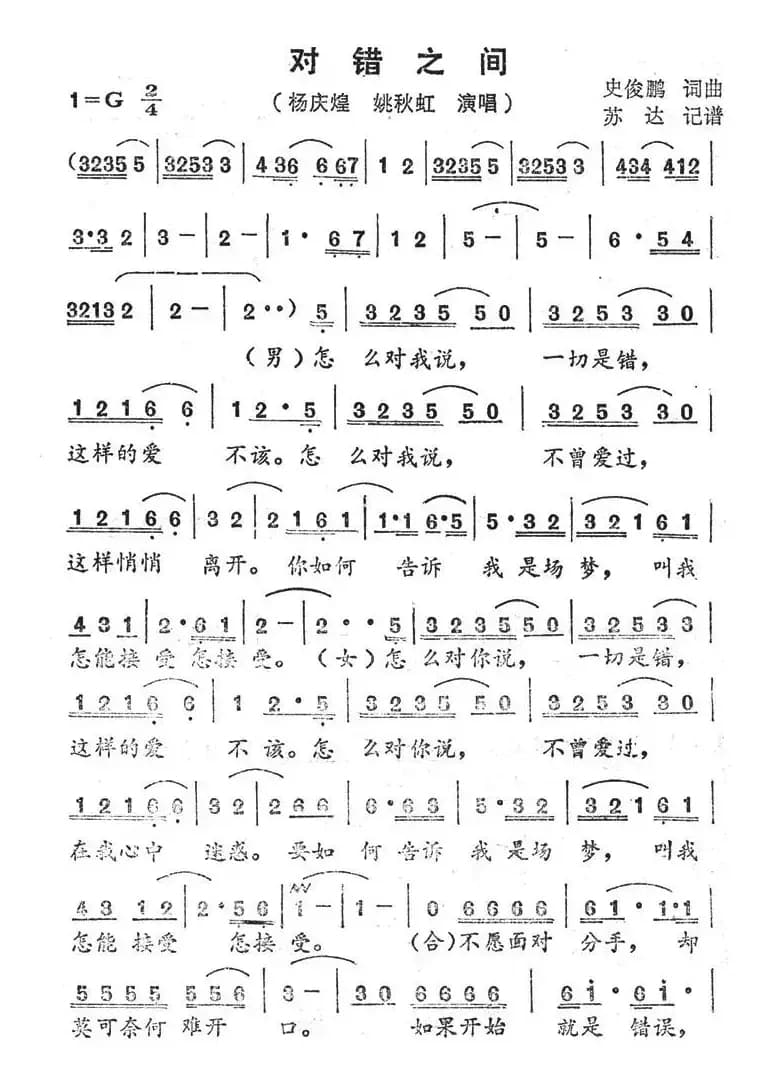 对错之间
1=G 2/4
(杨庆煌 姚秋虹 演唱)
史俊鹏 词曲
苏达 记谱
(32355|32533|436 667|1 2|32355|32533|434 412|
3·3 2|3-|2-|1·67|1 2|5-|5-|6·54|
32132|2-|2··) 5|3235 50|3253 30|
(男)怎 么对我说, 一切是错,
1216 6|1 2·5|3235 50|3253 30|
这样的爱 不该。怎 么对我说, 不曾爱过,
1216 6|3 2|2 161|1·1 6·5|5·32|321 61|
这样悄悄 离开。你如何 告诉 我是场梦, 叫我
4 3 1|2·61|2-|2··5|3235 50|3253 3|
怎能接受 怎接受。(女)怎 么对你说, 一切是错,
1216 6|1 2·5|3235 50|3253 30|
这样的爱 不该。怎 么对你说, 不曾爱过,
1216 6|3 2|2 6 6|6·63|5·32|321 61|
在我心中 迷惑。要如 何告诉 我是场梦, 叫我
43 12|2·56|1-|1-|0 6666|61· 1·1|
怎能 接受 怎接受。(合)不愿面对 分手, 却
5555 556|3-|30 6666|61· 61·|
莫可奈何 难开 口。 如果开始 就是 错误,